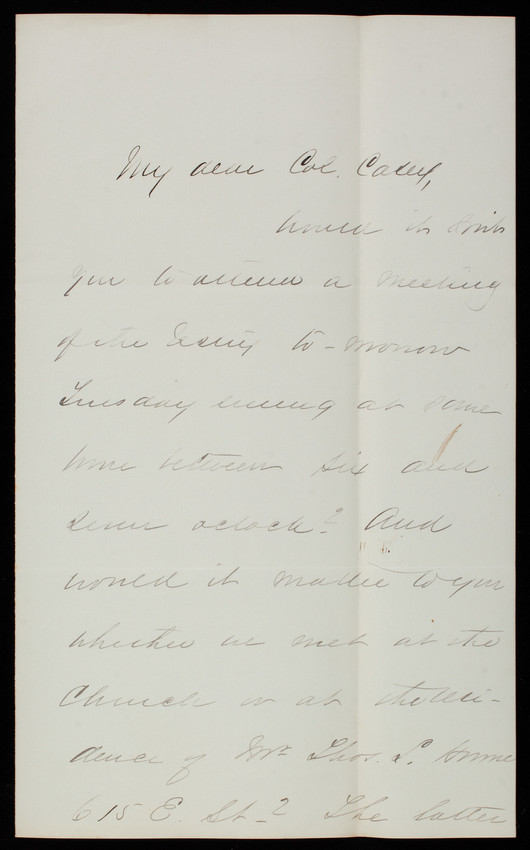 My dear Col. Casey,
Would it suit
you to attend a meeting
of the Vestry to-morrow
Tuesday evening at some
time between six and
seven o'clock? And
would it matter to you
whether we met at the
Church or at the resi-
dence of Mr. Thos. L. Hume
615 E. St.? The latter